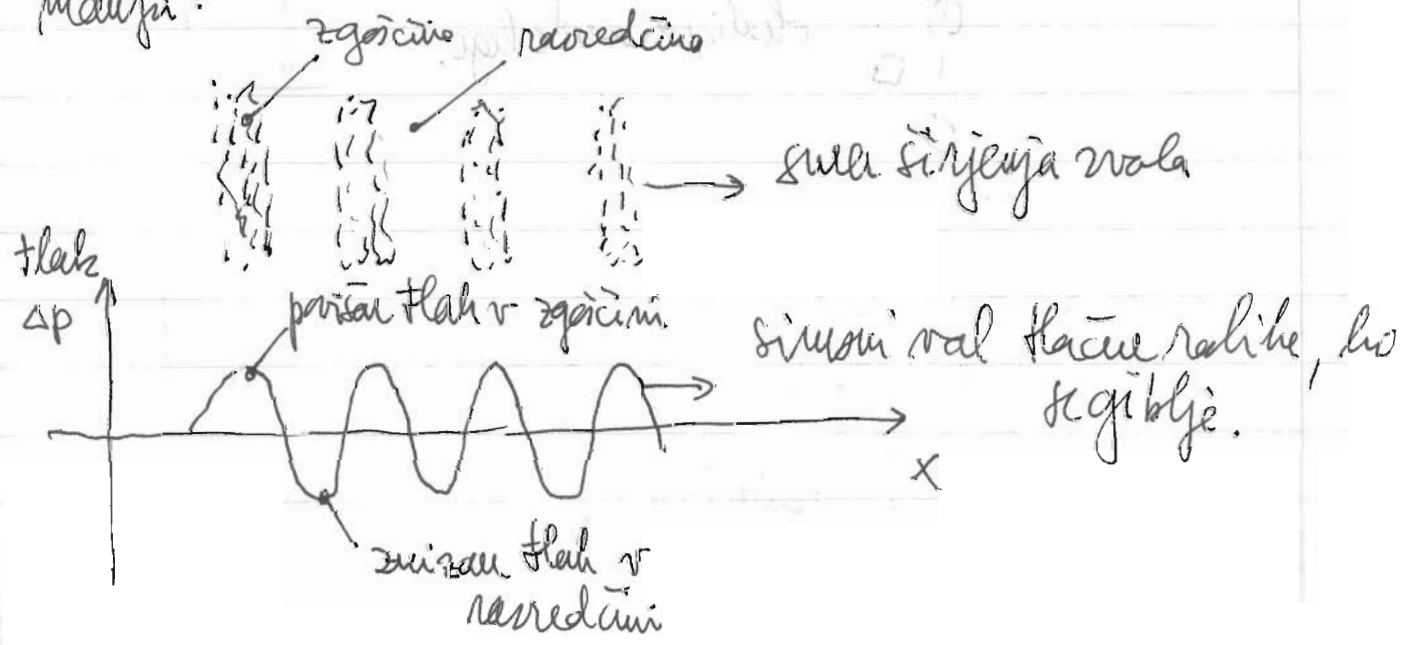 manjši.
zgoščina razredčina
smer širjenja vala
tlak
Δp
povišan tlak v zgoščini
sinusni val tlačne razlike, ko
se giblje.
x
znižan tlak v
razredčini